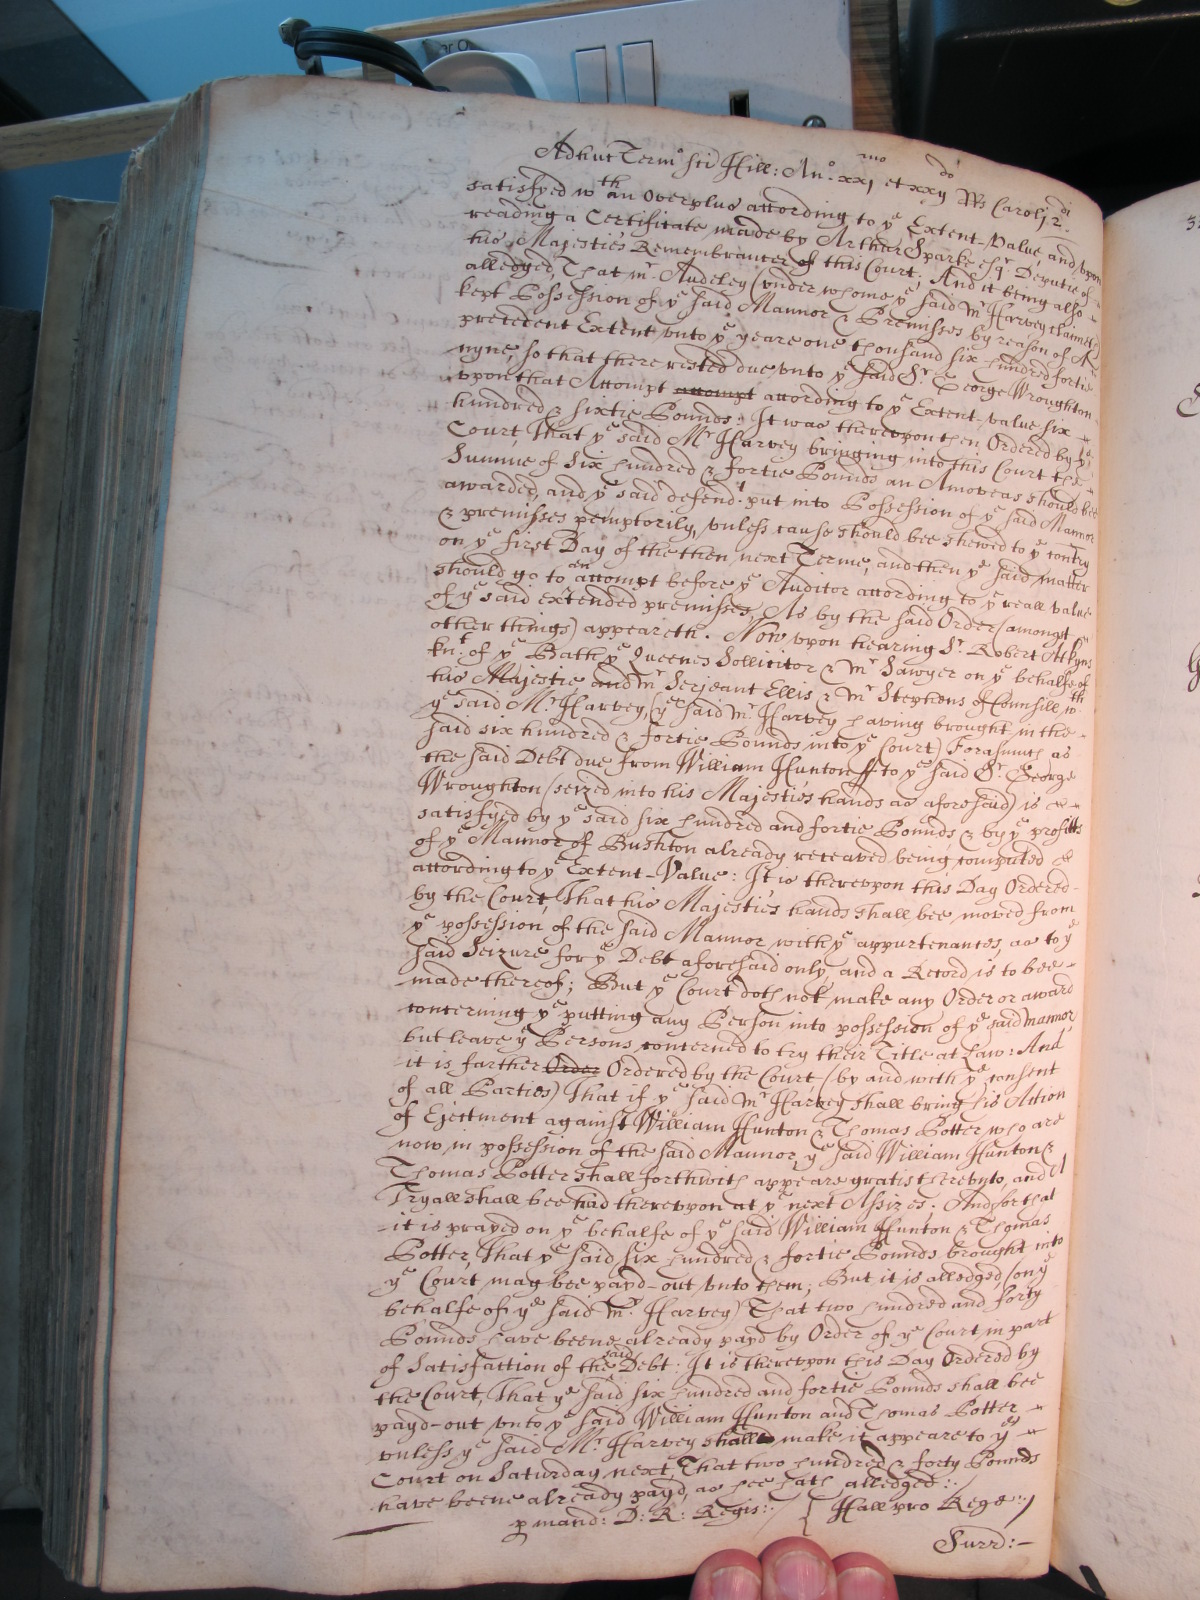 Adhuc Termo sci Hill: Ano. xxjmo et xxijdo Rs Carolj 2di.
satisfyed wth an Overplus according to ye Extent-Value, and upon
reading a Certificate made by Arthur Sparke esqr Deputie of
his Majesties Remembrancer of this Court. And it being also
alledged, That mr. Audeley (under whome ye said Mr Harvey claimeth
kept Possession of ye said Mannor & Premisses by reason of A
precedent Extent unto ye yeare one thousand six hundred fortie
nyne, so that there rested due unto ye said Sr. George Wroughton
upon that Accompt accompt according to ye Extent-value six
hundred & sixtie Pounds: It was thereupon then Ordered by ye
Court, That ye said Mr Harvey bringing into this Court the
Summe of Six hundred & fortie Pounds an Amoveas should bee
awarded, and ye said defendt. put into Possession of ye said Mannor
& premisses pemptorily, unless cause should bee shewed to ye contry
on ye first Day of the then next Terme, and then ye said matter
should go to an accompt before ye Auditor according to ye reall value
of ye said extended premisses, As by the said Order (amongst
other things) appeareth. Now upon hearing Sr. Robert Atkyns
knt. of ye Bath ye Queenes Sollicitor & Mr Sawyer on ye behalfe of
his Majestie and Mr Serjeant Ellis & Mr Stephens of Counsill wth
ye said Mr Harvey, (ye said Mr. Harvey having brought in the
said six hundred & fortie Pounds into ye Court) Forasmuch as
the said Debt due from William Hunton to ye said Sr. George
Wroughton (seized into his Majesties hands as aforesaid) is
satisfyed by ye said six hundred and fortie Pounds & by ye profitts
of ye Mannor of Bushton already receaved being computed
according to ye Extent-Value: It is thereupon this Day Ordered
by the Court, That his Majesties hands shall bee moved from
ye possession of the said Mannor with ye appurtenances, as to ye
said Seizure for ye Debt aforesaid only, and a Record is to bee
made thereof; But ye Court doth not make any Order or award
concerning ye putting any Person into possession of ye said mannor
but leave ye Persons concerned to try their Title at Law: And
it is farther Order Ordered by the Court (by and with ye consent
of all Parties) That if ye said Mr Harvey shall bring his Action
of Ejectment against William Hunton & Thomas Potter who are
now in possession of the said Mannor, ye said William Hunton &
Thomas Potter shall forthwith appeare gratis thereunto, and a
Tryall shall bee had thereupon at ye next Assizes. And for that
it is prayed on ye behalfe of ye said William Hunton & Thomas
Potter, That ye said six hundred & fortie Pounds brought into
ye Court may bee payd-out unto them; But it is alledged (on ye
behalfe of ye said Mr. Harvey) That two hundred and forty
Pounds have beene already payd by Order of ye Court in part
of Satisfaction of the said Debt. It is thereupon this Day Ordered by
the Court, That ye said six hundred and fortie Pounds shall bee
payd-out unto ye said William Hunton and Thomas Potter
unless ye said Mr. Harvey shall make it appeare to ye
Court on Saturday next, That two hundred & forty Pounds
have beene already payd, as hee hath alledged:
p mand: D: R: Regis: Hall pro Rege:
Surrd: